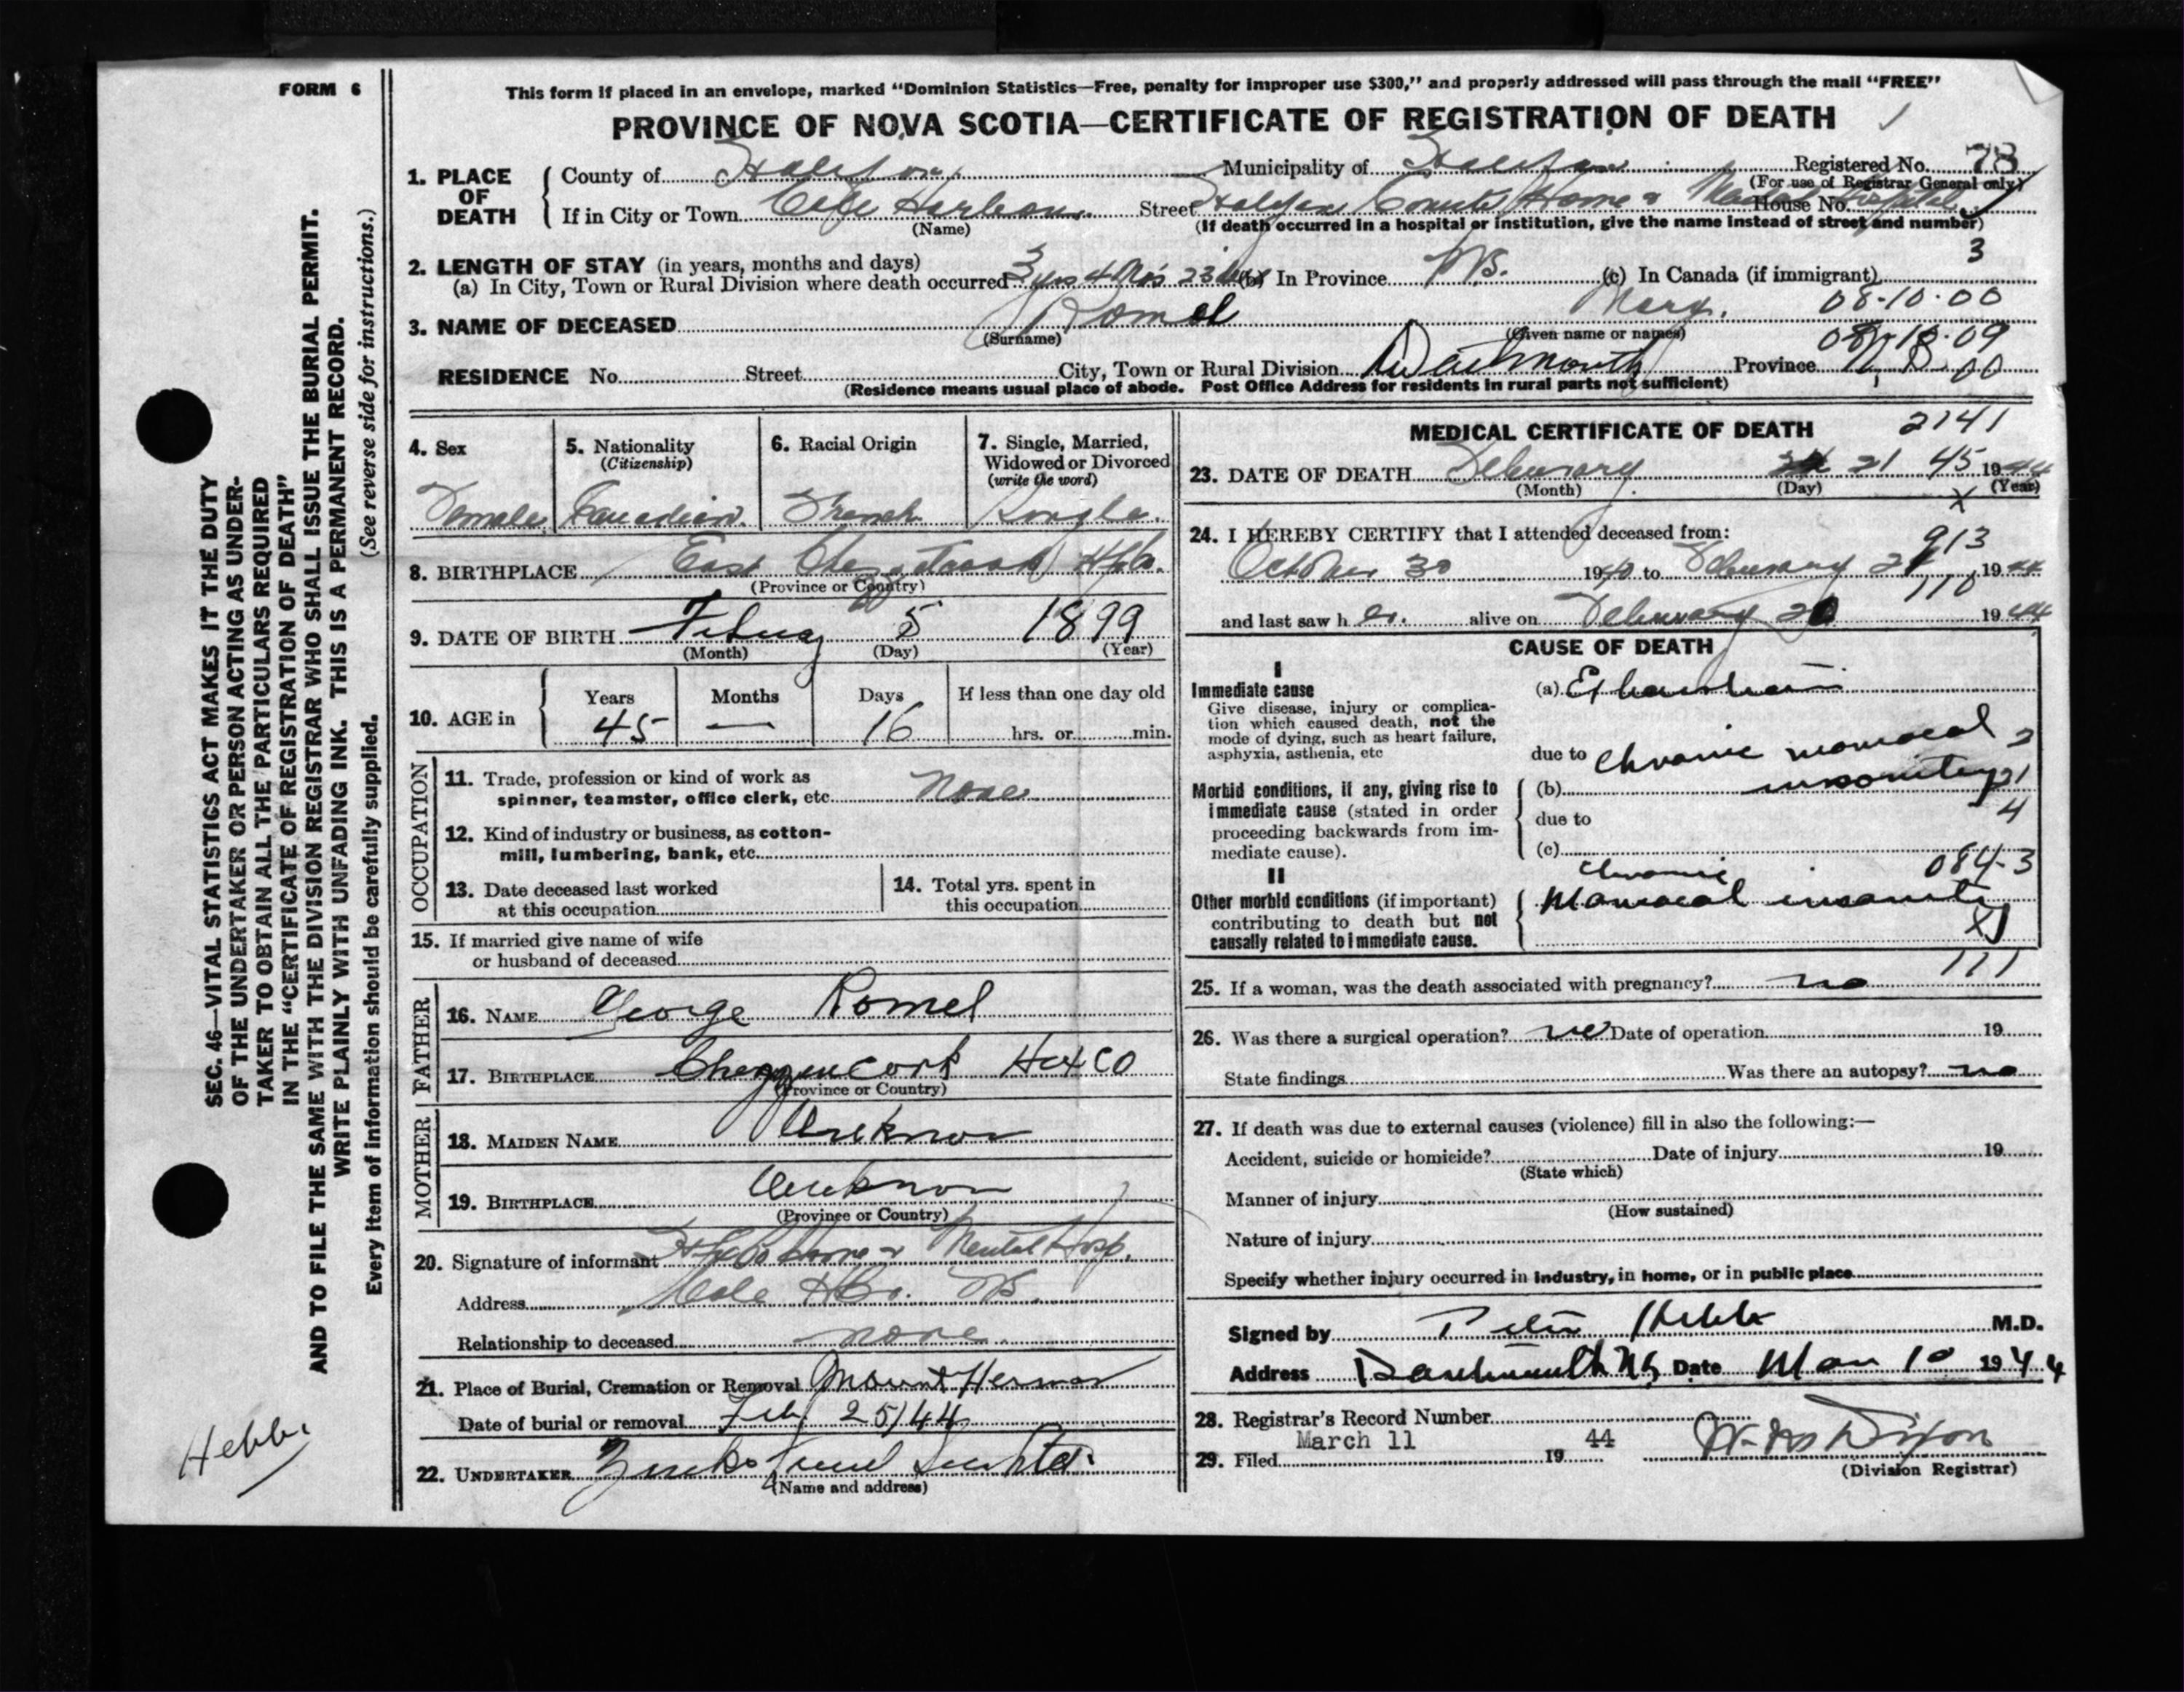 FORM 6
This form if placed in an envelope, marked “Dominion Statistics—Free, penalty for improper use $300,” and properly addressed will pass through the mail “FREE”
PROVINCE OF NOVA SCOTIA—CERTIFICATE OF REGISTRATION OF DEATH
1. PLACE OF DEATH
County of Halifax Municipality of Halifax Registered No. 78
(For use of Registrar General only)
If in City or Town Cole Harbour Street Halifax County Home & Mental Hospital House No.
(Name) (If death occurred in a hospital or institution, give the name instead of street and number)
3
2. LENGTH OF STAY (in years, months and days)
(a) In City, Town or Rural Division where death occurred 3 yrs 4 Mos 23 (b) In Province N.S. (c) In Canada (if immigrant)
08-10-00
3. NAME OF DECEASED Romel Mary.
(Surname) (Given name or names)
RESIDENCE No. Street City, Town or Rural Division Dartmouth Province N S.
(Residence means usual place of abode. Post Office Address for residents in rural parts not sufficient)
4. Sex 5. Nationality (Citizenship) 6. Racial Origin 7. Single, Married, Widowed or Divorced (write the word)
Female Canadian. French Single.
8. BIRTHPLACE East Chezzetcook Hfx Co.
(Province or Country)
9. DATE OF BIRTH 5 1899
(Month) (Day) (Year)
10. AGE in Years Months Days If less than one day old
45 — 16 hrs. or min.
OCCUPATION
11. Trade, profession or kind of work as
spinner, teamster, office clerk, etc. None
12. Kind of industry or business, as cotton-
mill, lumbering, bank, etc.
13. Date deceased last worked
at this occupation
14. Total yrs. spent in
this occupation
15. If married give name of wife
or husband of deceased
FATHER
16. NAME George Romel
17. BIRTHPLACE Hfx CO
(Province or Country)
MOTHER
18. MAIDEN NAME Unknon
19. BIRTHPLACE Unknon
(Province or Country)
20. Signature of informant Hfx Co Home & Mental Hosp.
Address Cole Hbr. NS.
Relationship to deceased none.
21. Place of Burial, Cremation or Removal Mount Herman
Date of burial or removal Feb 25/44
22. UNDERTAKER
(Name and address)
MEDICAL CERTIFICATE OF DEATH
2141
23. DATE OF DEATH February 21 45 1944
(Month) (Day) (Year)
X
24. I HEREBY CERTIFY that I attended deceased from:
913
October 30 1940 to February 21, 1944
110
and last saw h er. alive on February 20 1944
CAUSE OF DEATH
I
Immediate cause
Give disease, injury or complica-
tion which caused death, not the
mode of dying, such as heart failure,
asphyxia, asthenia, etc
(a) Exhaustion
due to chronic maniacal
Morbid conditions, if any, giving rise to
immediate cause (stated in order
proceeding backwards from im-
mediate cause).
(b) insanity
due to
(c)
084-3
II
Other morbid conditions (if important)
contributing to death but not
causally related to immediate cause.
chronic
Maniacal insanity
111
25. If a woman, was the death associated with pregnancy? no
26. Was there a surgical operation? no Date of operation 19
State findings Was there an autopsy? no
27. If death was due to external causes (violence) fill in also the following:—
Accident, suicide or homicide? Date of injury 19
(State which)
Manner of injury
(How sustained)
Nature of injury
Specify whether injury occurred in industry, in home, or in public place
Signed by Peter Hebb M.D.
Address Dartmouth NS Date Mar 10 1944
28. Registrar's Record Number
29. Filed March 11 19 44 Dixon
(Division Registrar)
SEC. 46—VITAL STATISTICS ACT MAKES IT THE DUTY
OF THE UNDERTAKER OR PERSON ACTING AS UNDER-
TAKER TO OBTAIN ALL THE PARTICULARS REQUIRED
IN THE “CERTIFICATE OF REGISTRATION OF DEATH”
AND TO FILE THE SAME WITH THE DIVISION REGISTRAR WHO SHALL ISSUE THE BURIAL PERMIT.
WRITE PLAINLY WITH UNFADING INK. THIS IS A PERMANENT RECORD.
Every item of information should be carefully supplied. (See reverse side for instructions.)
Hebb.